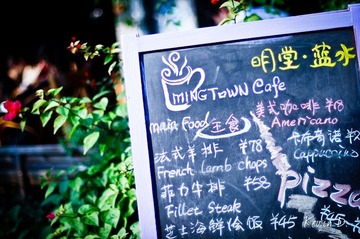 明堂·蓝水
MINGTOWN Cafe
美式咖啡 ¥18
Main Food
Americano
主食
法式羊排 ¥78
Cappuccino
French lamb chops
pizza
菲力牛排 ¥58
Fillet Steak
芝士海鲜焗饭 ¥45
¥45